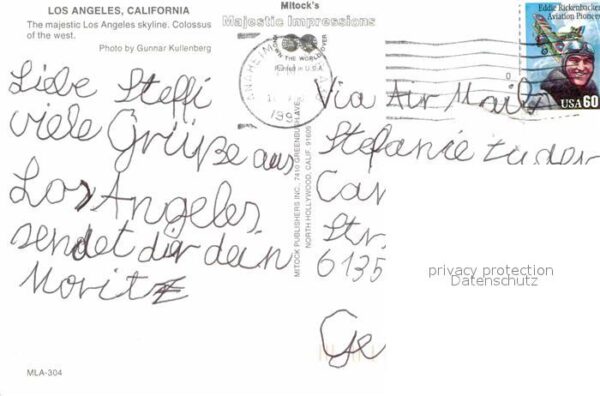 LOS ANGELES, CALIFORNIA
The majestic Los Angeles skyline. Colossus
of the west.
Photo by Gunnar Kullenberg
Liebe Steffi
viele Grüße aus
Los Angeles
sendet dir dein
Moritz
MLA-304
Mitock's
Majestic Impressions
THE WORLD OVER
Printed in U.S.A.
ANAHEIM
MITOCK PUBLISHERS INC., 7410 GREENBUSH AVE.
NORTH HOLLYWOOD, CALIF. 91605
Eddie Rickenbacker
Aviation Pioneer
USA 60
Via Air Mail
Stefanie
Car
Str.
6135
Ge
privacy protection
Datenschutz